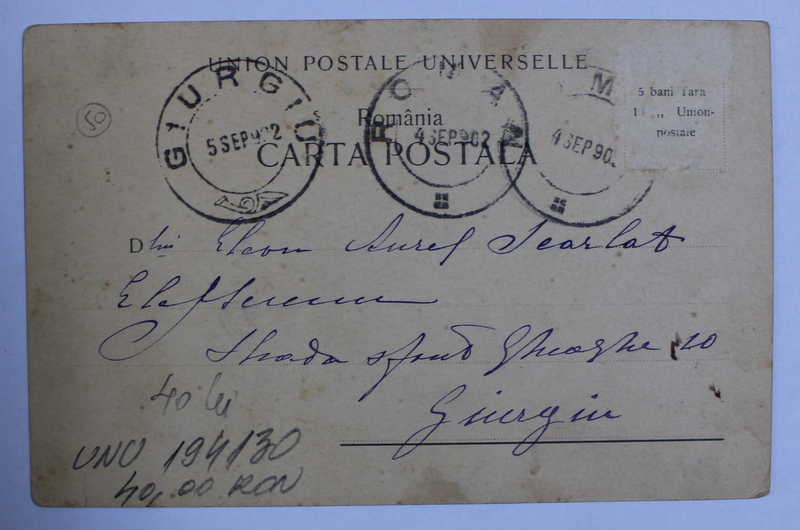 UNION POSTALE UNIVERSELLE
România
CARTA POSTALA
GIURGIU
5 SEP 902
ROMAN
4 SEP 902
M
4 SEP 90
5 bani Tara
1 „ Union-
postale
50
Dlui Elcon Aurel Scarlat
Strada sfant Gheorghe 10
Giurgiu
40 lei
UNU 194130
40,00 RON